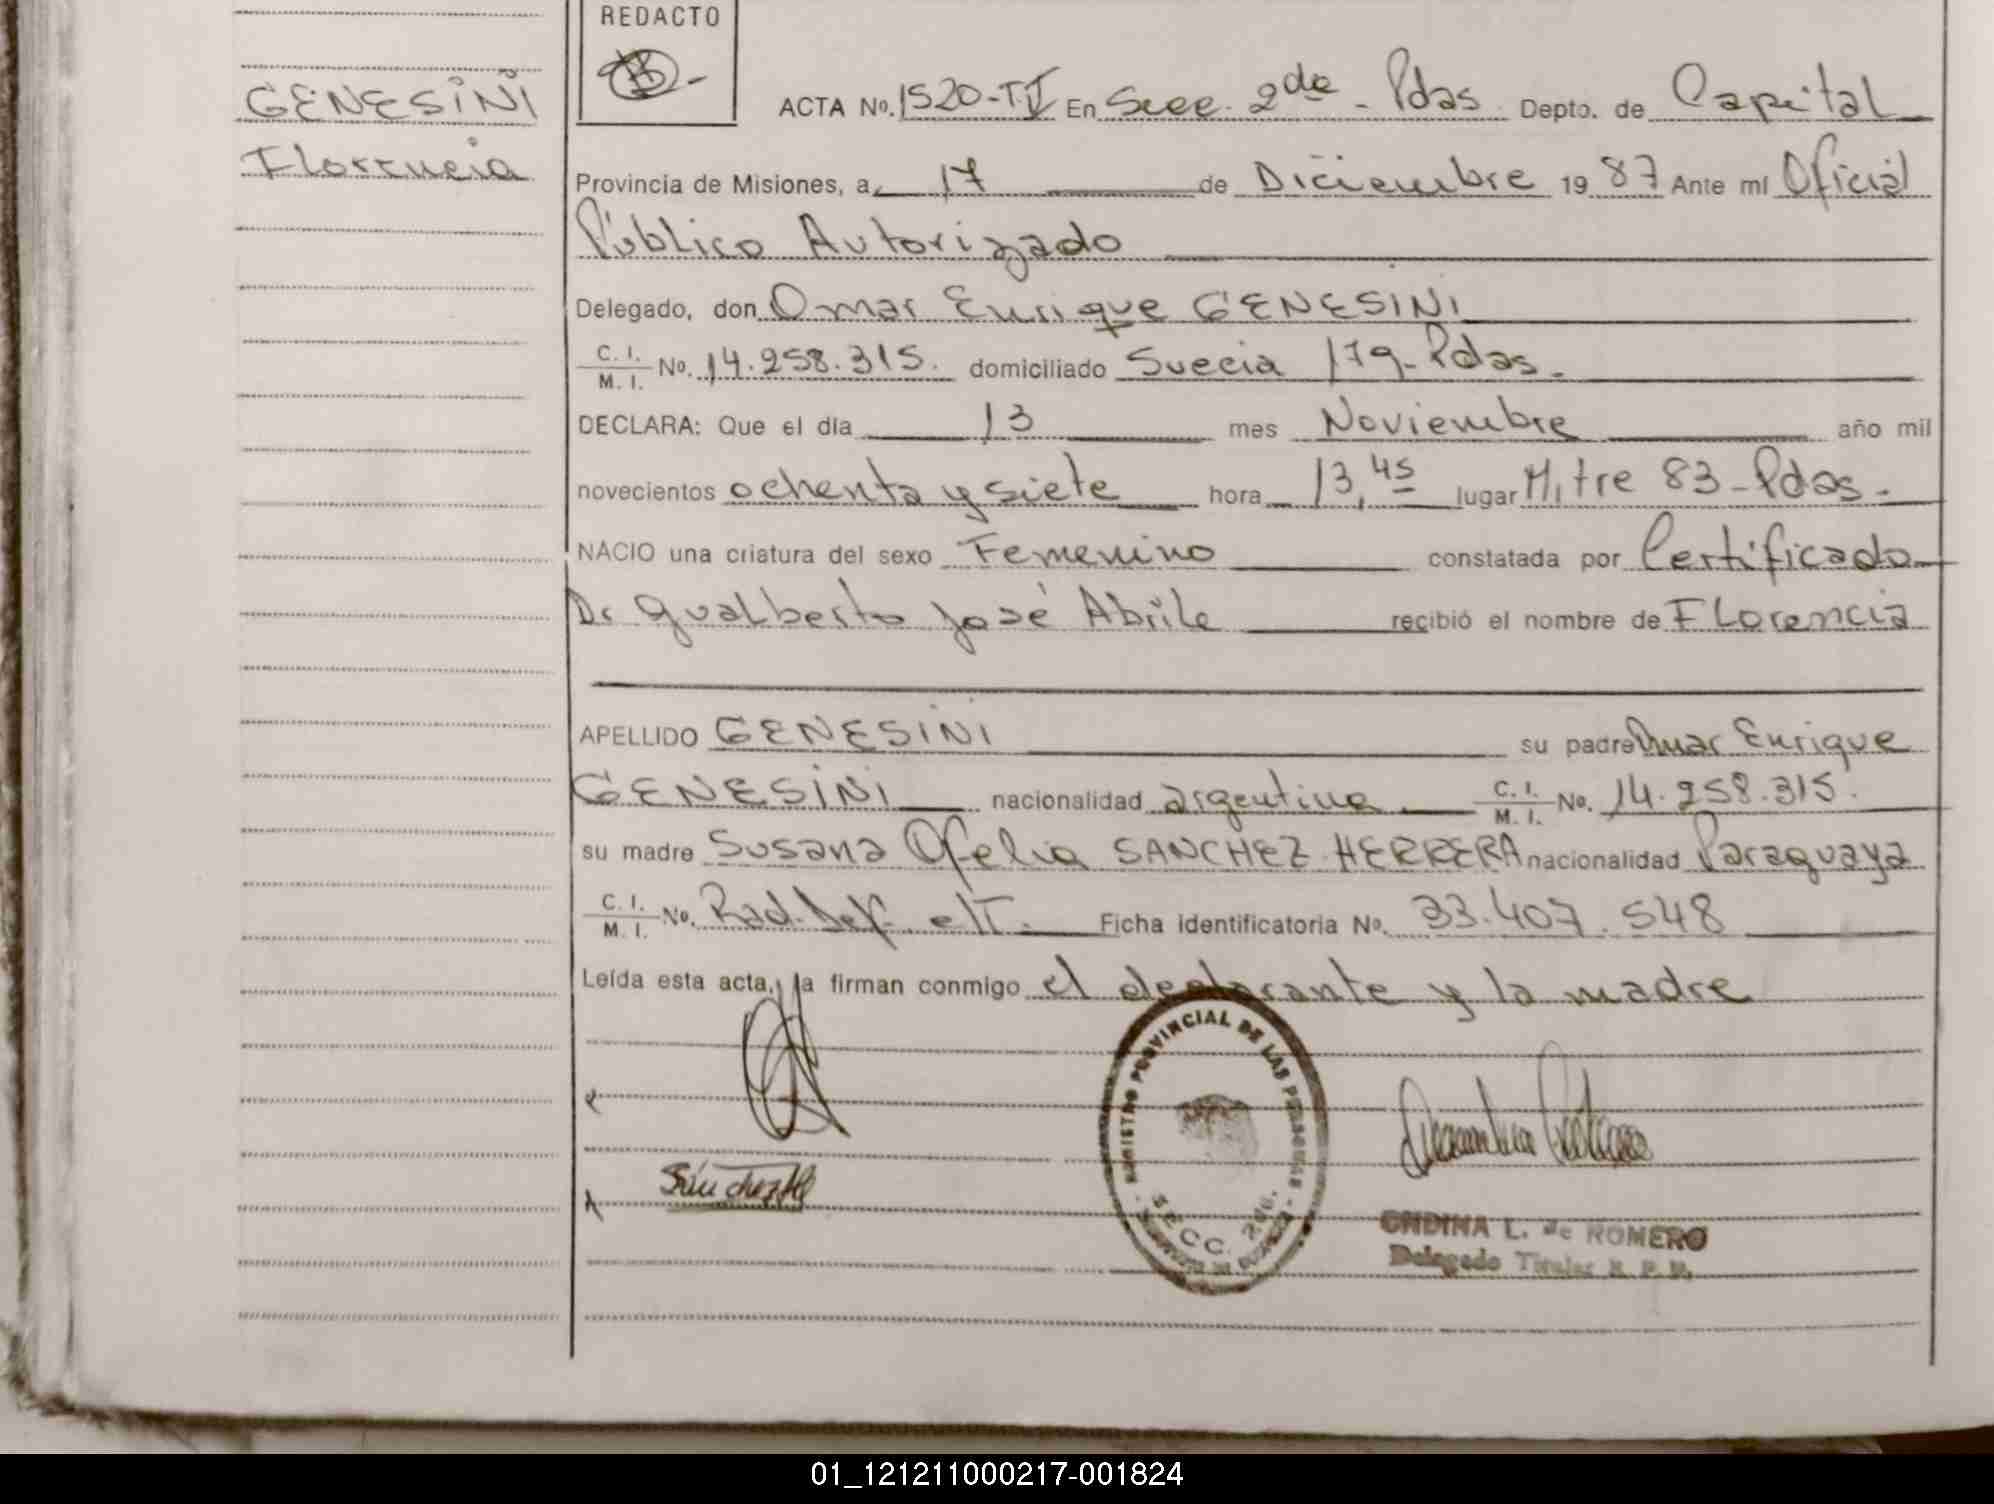 REDACTO
GENESINI
Florencia
ACTA No. 1520-T.V En Secc. 2da - Pdas. Depto. de Capital
Provincia de Misiones, a 17 de Diciembre 19 87 Ante mí Oficial
Público Autorizado
Delegado, don Omar Enrique GENESINI
C. I. M. I. No. 14.258.315. domiciliado Suecia 179-Pdas.
DECLARA: Que el día 13 mes Noviembre año mil
novecientos ochenta y siete hora 13,45 lugar Mitre 83-Pdas.-
NACIO una criatura del sexo Femenino constatada por Certificado
Dr Gualberto José Abrile recibió el nombre de Florencia
APELLIDO GENESINI su padre Omar Enrique
GENESINI nacionalidad argentina C. I. M. I. No. 14.258.315.
su madre Susana Ofelia SANCHEZ HERRERA nacionalidad Paraguaya
C. I. M. I. No. Rad. Def. Ficha identificatoria No. 33.407.548
Leída esta acta, la firman conmigo el declarante y la madre
REGISTRO PROVINCIAL DE LAS PERSONAS
SECC. 2da.
ONDINA L. de ROMERO
Delegado Titular R. P. P.
01_121211000217-001824